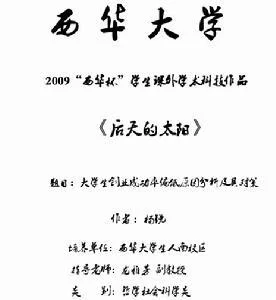 西华大学
2009“西华杯”学生课外学术科技作品
《后天的太阳》
题目：大学生创业成功率偏低原因分析及其对策
作者：杨锐
培养单位：西华大学生人南校区
指导老师：龙柏  副教授
类 别：哲学社会科学类